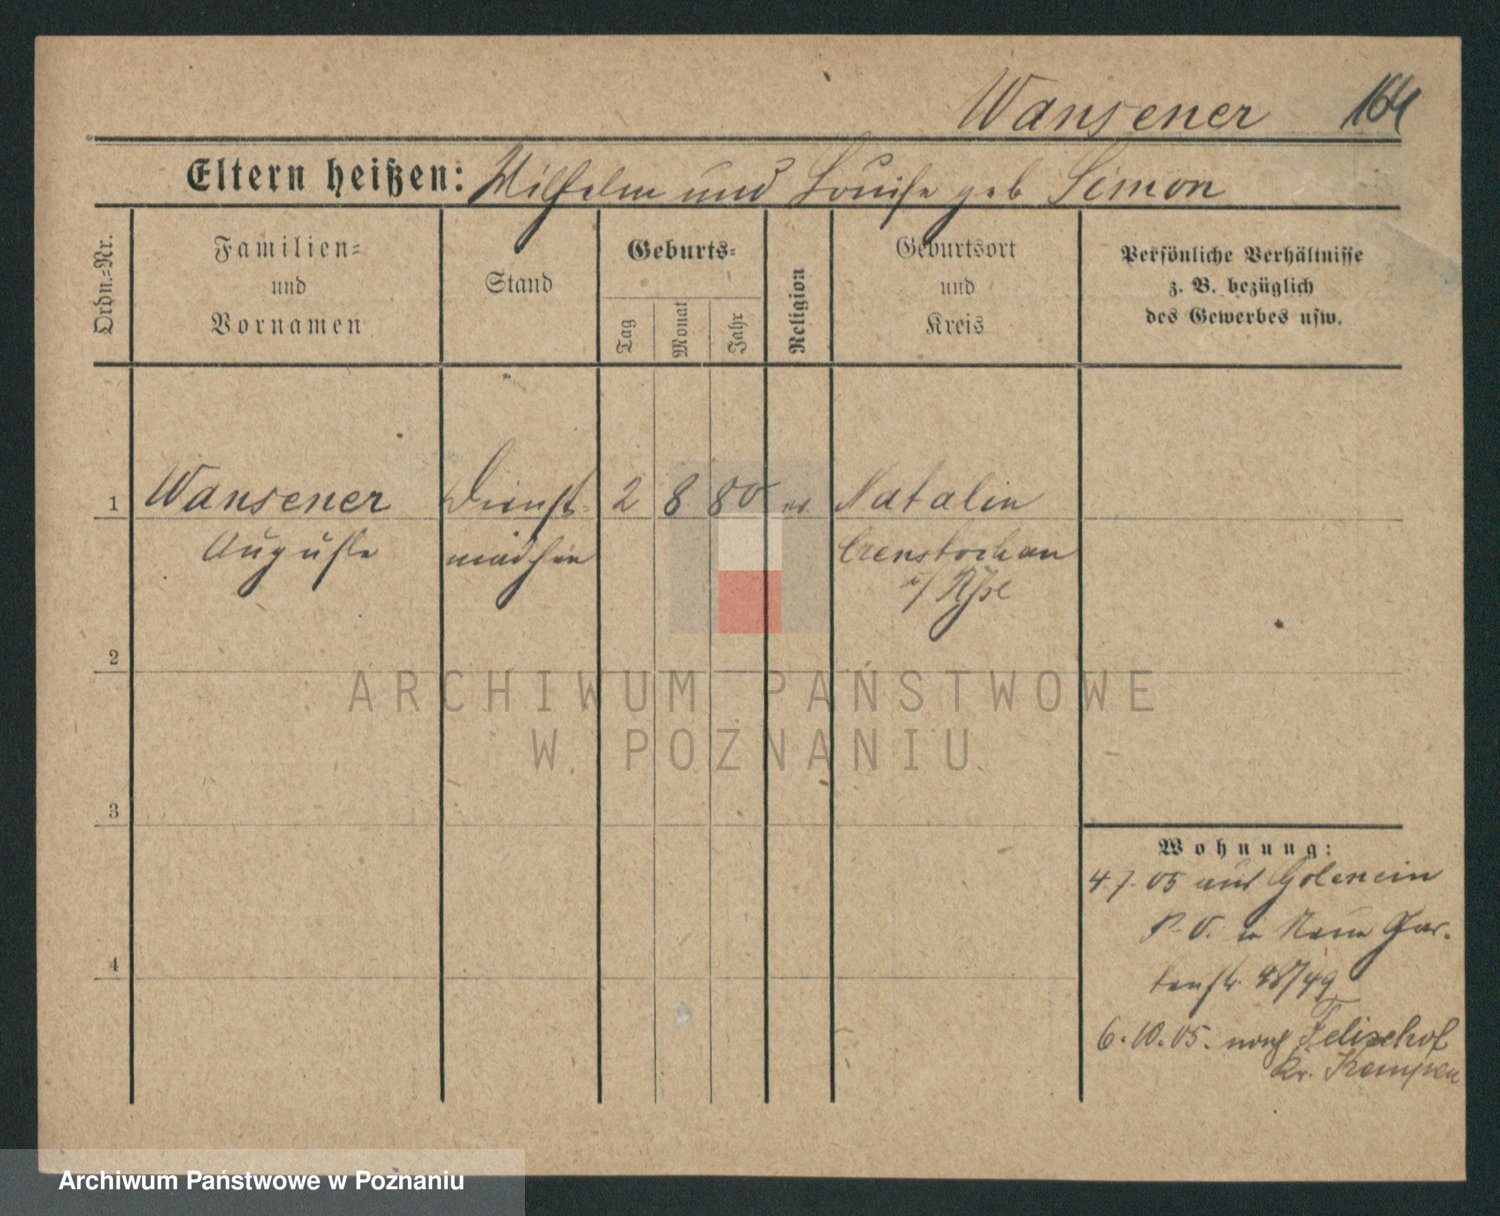 Wansener 164
Eltern heißen: Wilhelm und Louise geb Simon
Ordn.-Nr.
Familien-
und
Vornamen
Stand
Geburts-
Tag
Monat
Jahr
Religion
Geburtsort
und
Kreis
Persönliche Verhältnisse
z. B. bezüglich
des Gewerbes usw.
1 Wansener Dienst- 2 8 80 ev. Natalin
Auguste mädchen Czenstochau
2
3
4
Wohnung:
4.7.05 aus Golencin
in Neue Gar-
tenstr. 48/49
6.10.05. nach Felixhof
Kr. Kempen
ARCHIWUM PAŃSTWOWE
W POZNANIU
Archiwum Państwowe w Poznaniu